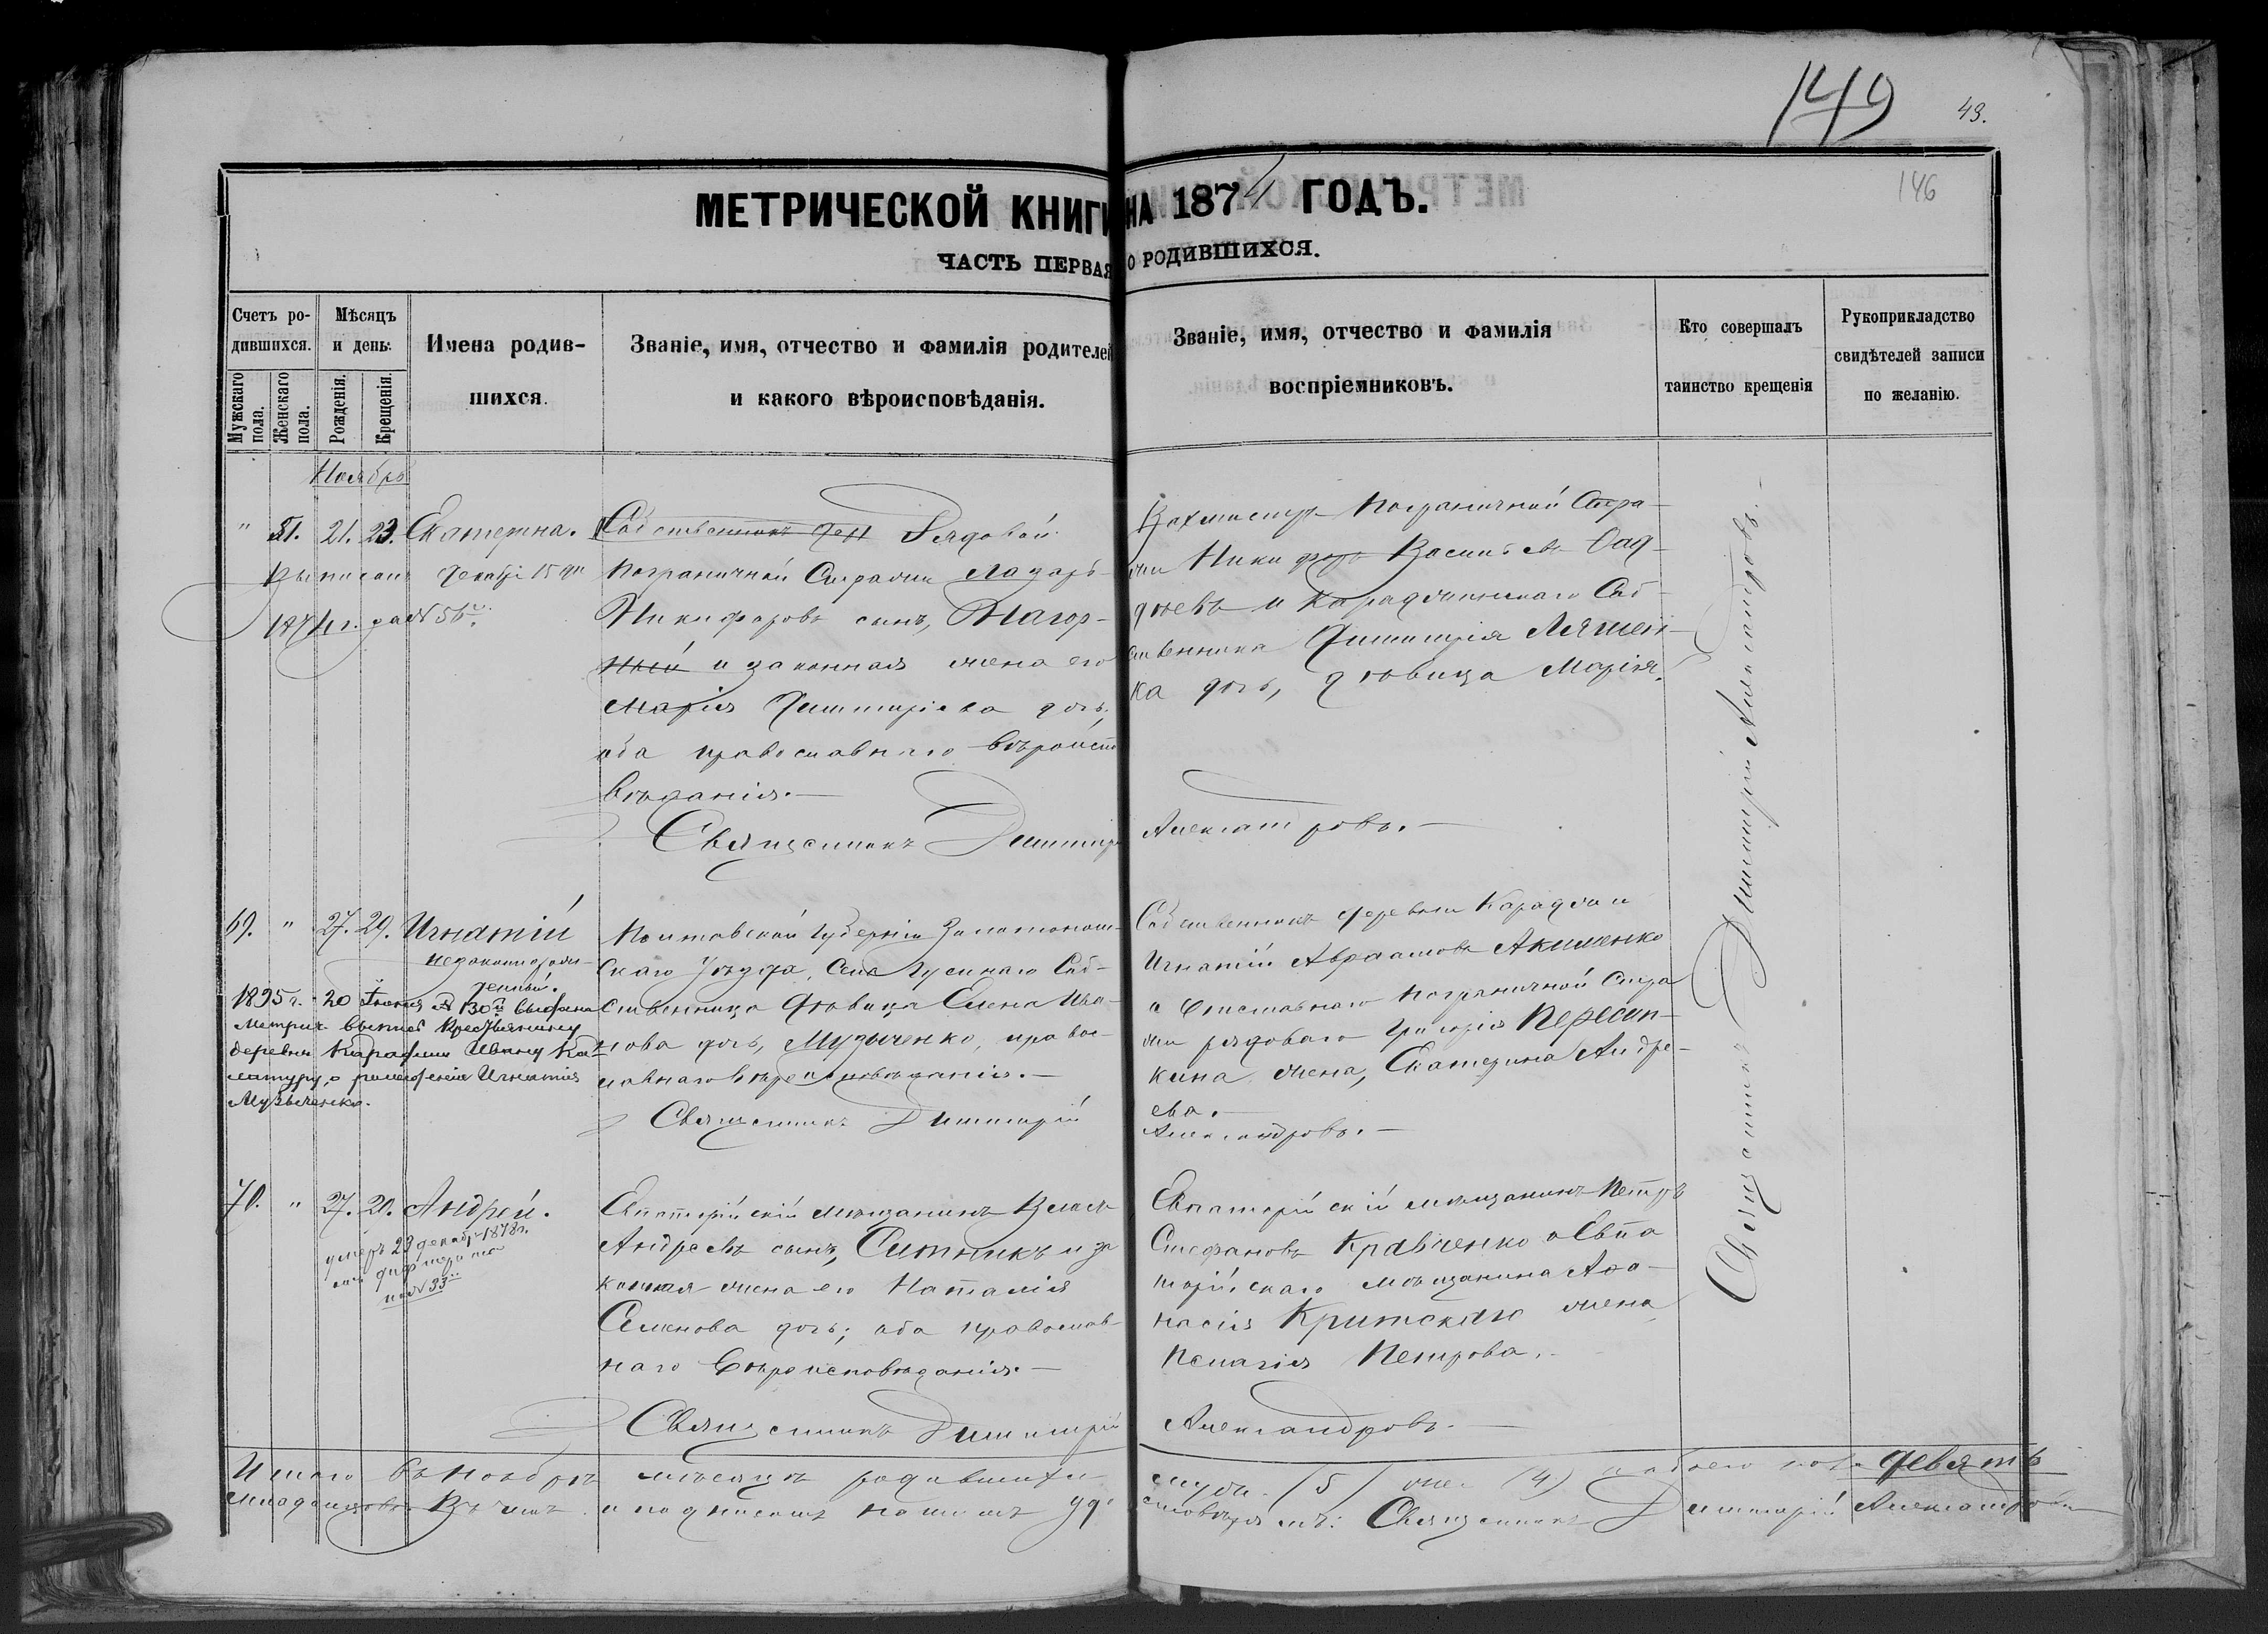 149
43.
146
МЕТРИЧЕСКОЙ КНИГИ НА 1874 ГОДЪ.
ЧАСТЬ ПЕРВАЯ О РОДИВШИХСЯ.
Счетъ родившихся.
Мужскаго пола.
Женскаго пола.
Мѣсяцъ и день.
Рожденія.
Крещенія.
Имена родив-
шихся.
Званіе, имя, отчество и фамилія родителей
и какого вѣроисповѣданія.
Званіе, имя, отчество и фамилія
воспріемниковъ.
Кто совершалъ
таинство крещенія
Рукоприкладство
свидѣтелей записи
по желанію.
Ноябрь
" 51. 21. 23. Екатерина.
Декабря 15 дня
1874 г. за № 56
Рядовой
Пограничной Стражи Лазарь
Никифоровъ сынъ, Нагор-
ный и законная жена его
Марія Димитріева дочь,
оба православнаго вѣроиспо
вѣданія.—
Вахмистръ Пограничной Стра-
жи Никифоръ Василіевъ
и Караджинскаго Соб-
ственника Димитрія Ляшен-
ка дочь, дѣвица Марія.
Священникъ Димитрій Александровъ.—
69. " 27. 29. Игнатій
незаконнорож-
денный.
1895 г. 20 Іюня № 130 выдана
Метрич. выпись Крестьянину
деревни Караджи Ивану Ка-
о рожденіи Игнатія
Музыченко.
Полтавской Губерніи Золотонош-
скаго Уѣзда, Села Гусинаго Соб-
ственница дѣвица Елена Ива-
нова дочь, Музыченко, правос-
лавнаго вѣроисповѣданія.—
Собственникъ деревни Караджи
Игнатій Авраамовъ Акименко
и отставнаго Пограничной Стра
жи рядоваго Григорія Пересип-
кина жена, Екатерина Андре-
ева.
Священникъ Димитрій Александровъ.—
70. " 27. 29. Андрей.
умеръ 23 декабр. 1878 г.
отъ дифтерита
по № 33
Евпаторійскій мѣщанинъ Власъ
Андреевъ сынъ, Ситникъ и за
конная жена его Наталія
Семенова дочь; оба православ-
наго Вѣроисповѣданія.—
Евпаторійскій мѣщанинъ Петръ
Стефановъ Кравченко и Евпа
торійскаго мѣщанина Афа-
насія Критскаго жена,
Пелагія Петрова.
Священникъ Димитрій Александровъ.—
Священникъ Димитрій Александровъ.—
Итого въ Ноябрѣ мѣсяцѣ родившихся муж. (5) жен. (4) обоего пола девять
младенцовъ. Въ чемъ и подписомъ нашимъ удостовѣряемъ: Священникъ Димитрій Александровъ